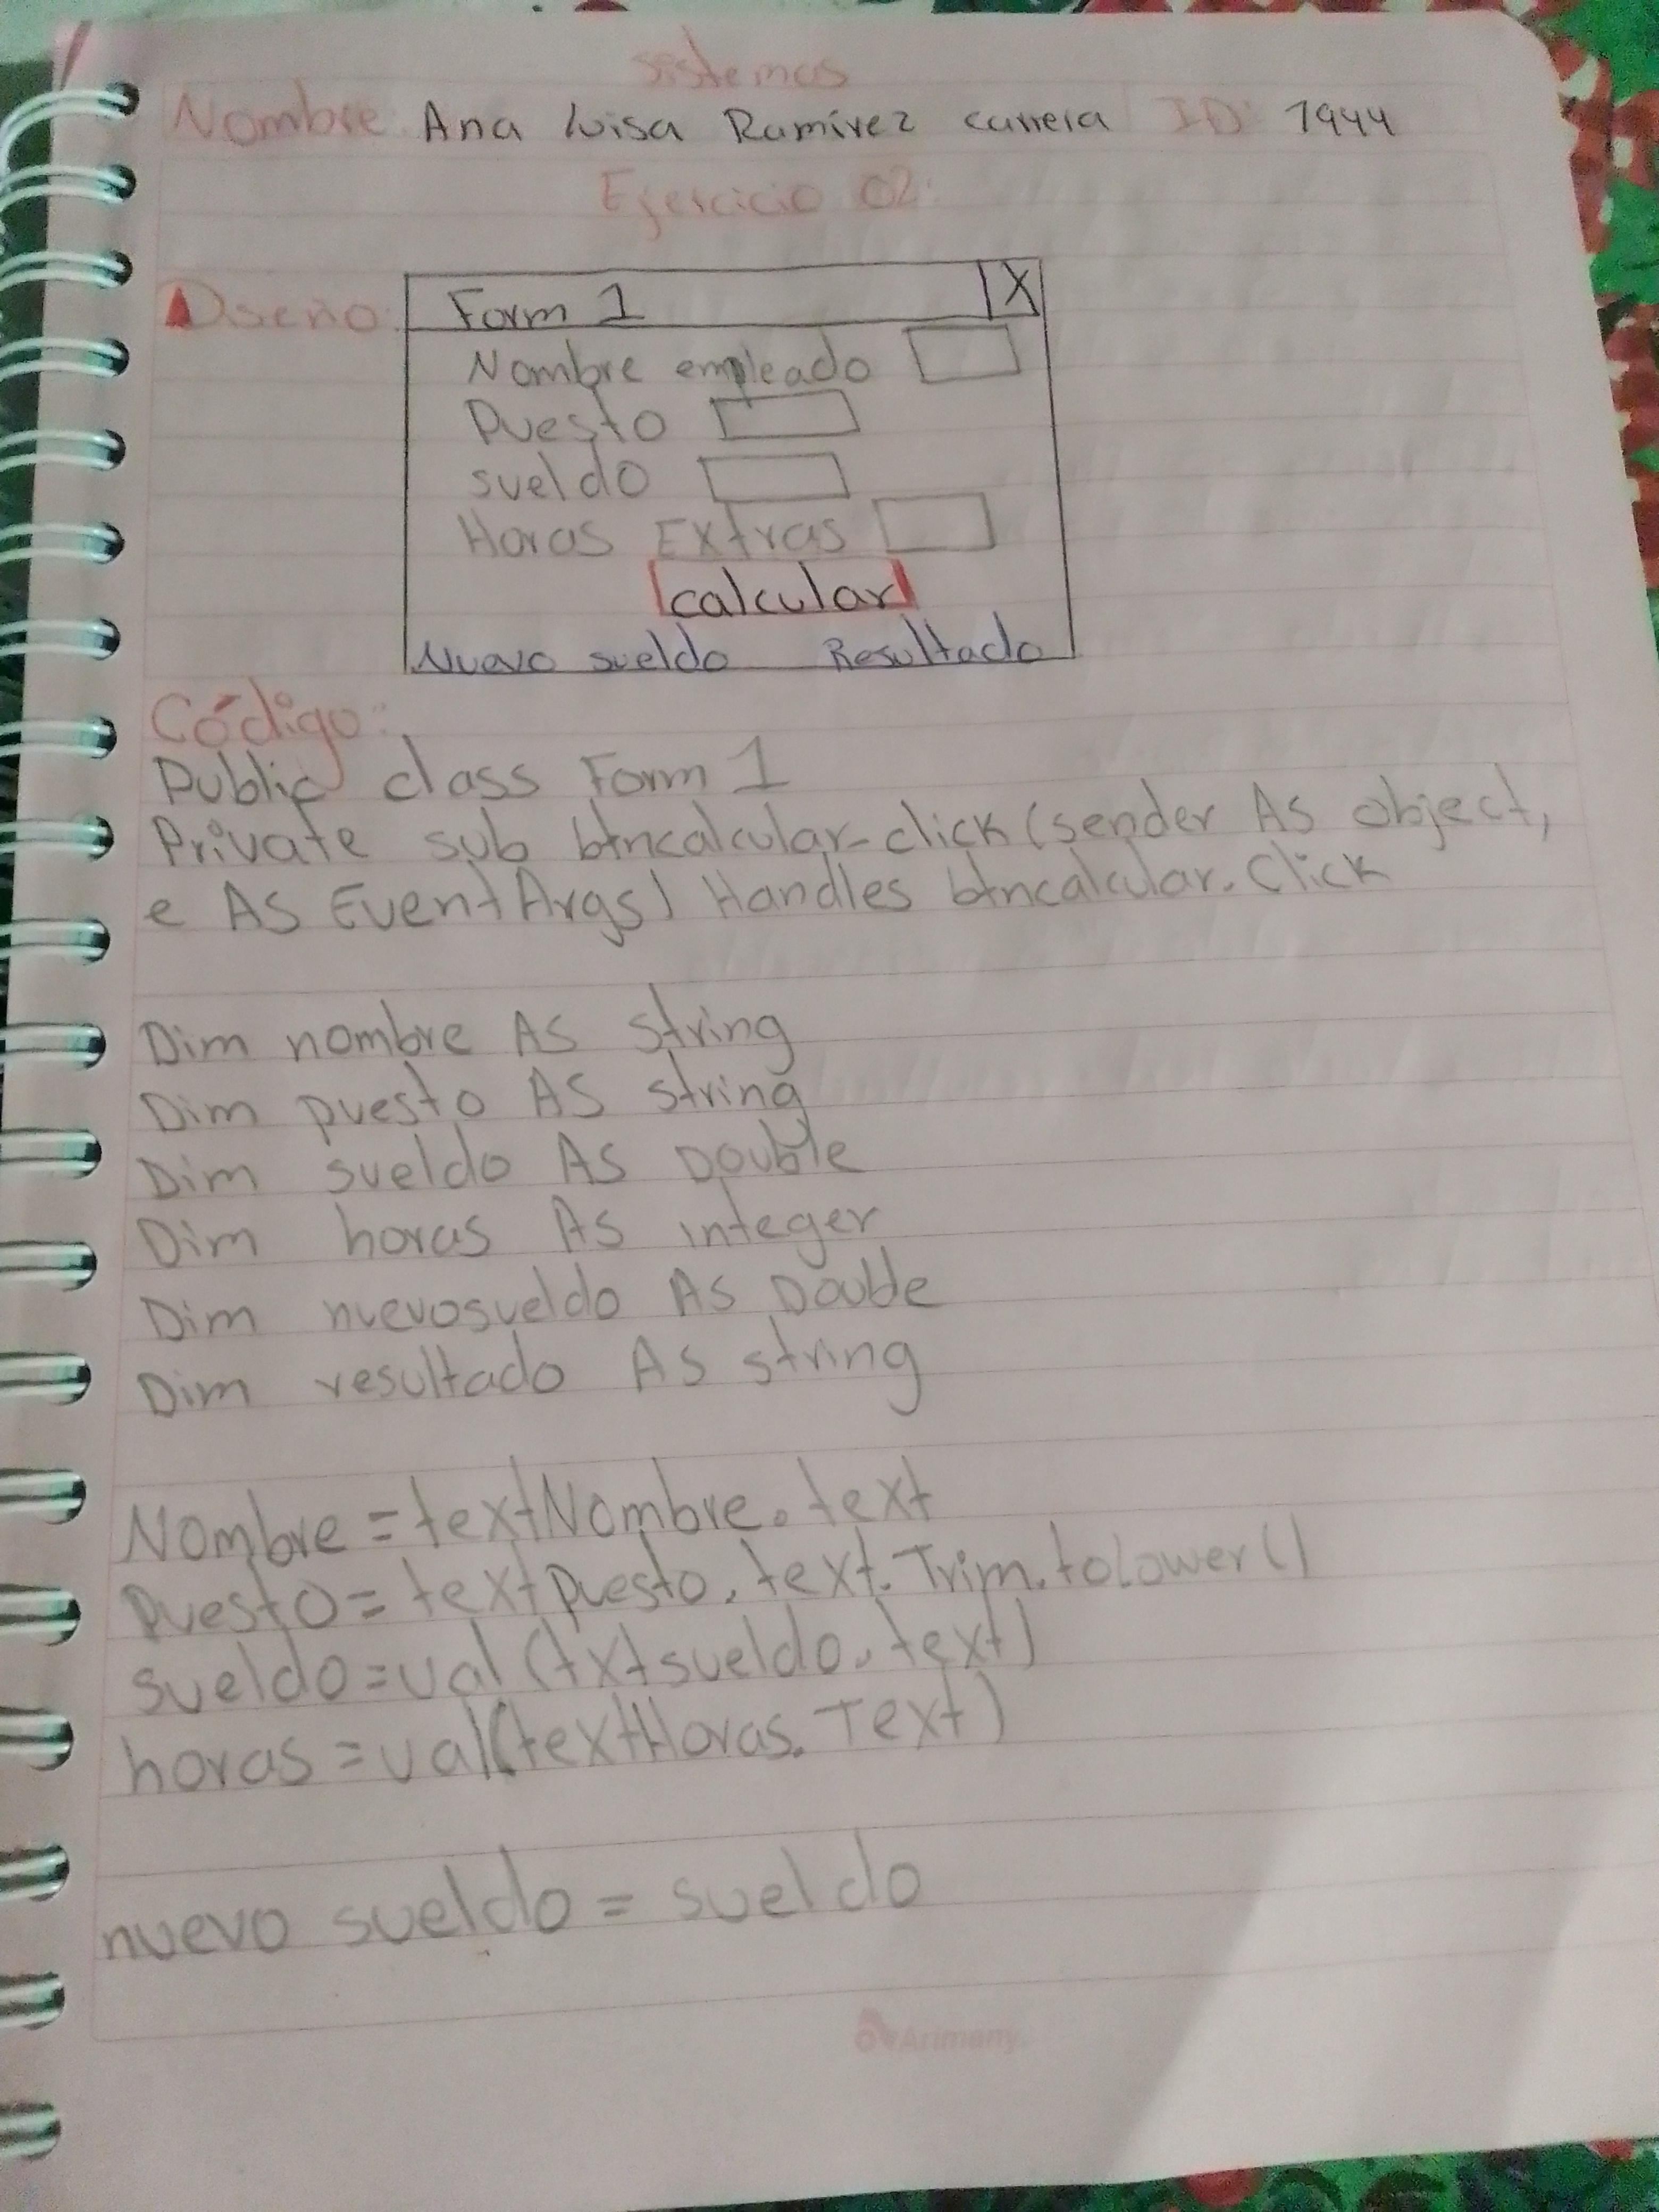 sistemas
Nombre: Ana Luisa Ramírez carrera ID: 1944
Ejercicio 02:
Diseño:
Form 1 X
Nombre empleado
Puesto
sueldo
Horas Extras
calcular
Nuevo sueldo Resultado
Código:
Public class Form 1
Private sub btncalcular-click (sender As object,
e As EventArgs) Handles btncalcular. Click
Dim nombre As string
Dim puesto As string
Dim sueldo As Double
Dim horas As integer
Dim nuevosueldo As Double
Dim resultado As string
Nombre = textNombre. text
Puesto = textpuesto. text. Trim. toLower()
sueldo = val (txtsueldo. text)
horas = val(textHoras. Text)
nuevo sueldo = sueldo
Arimany.